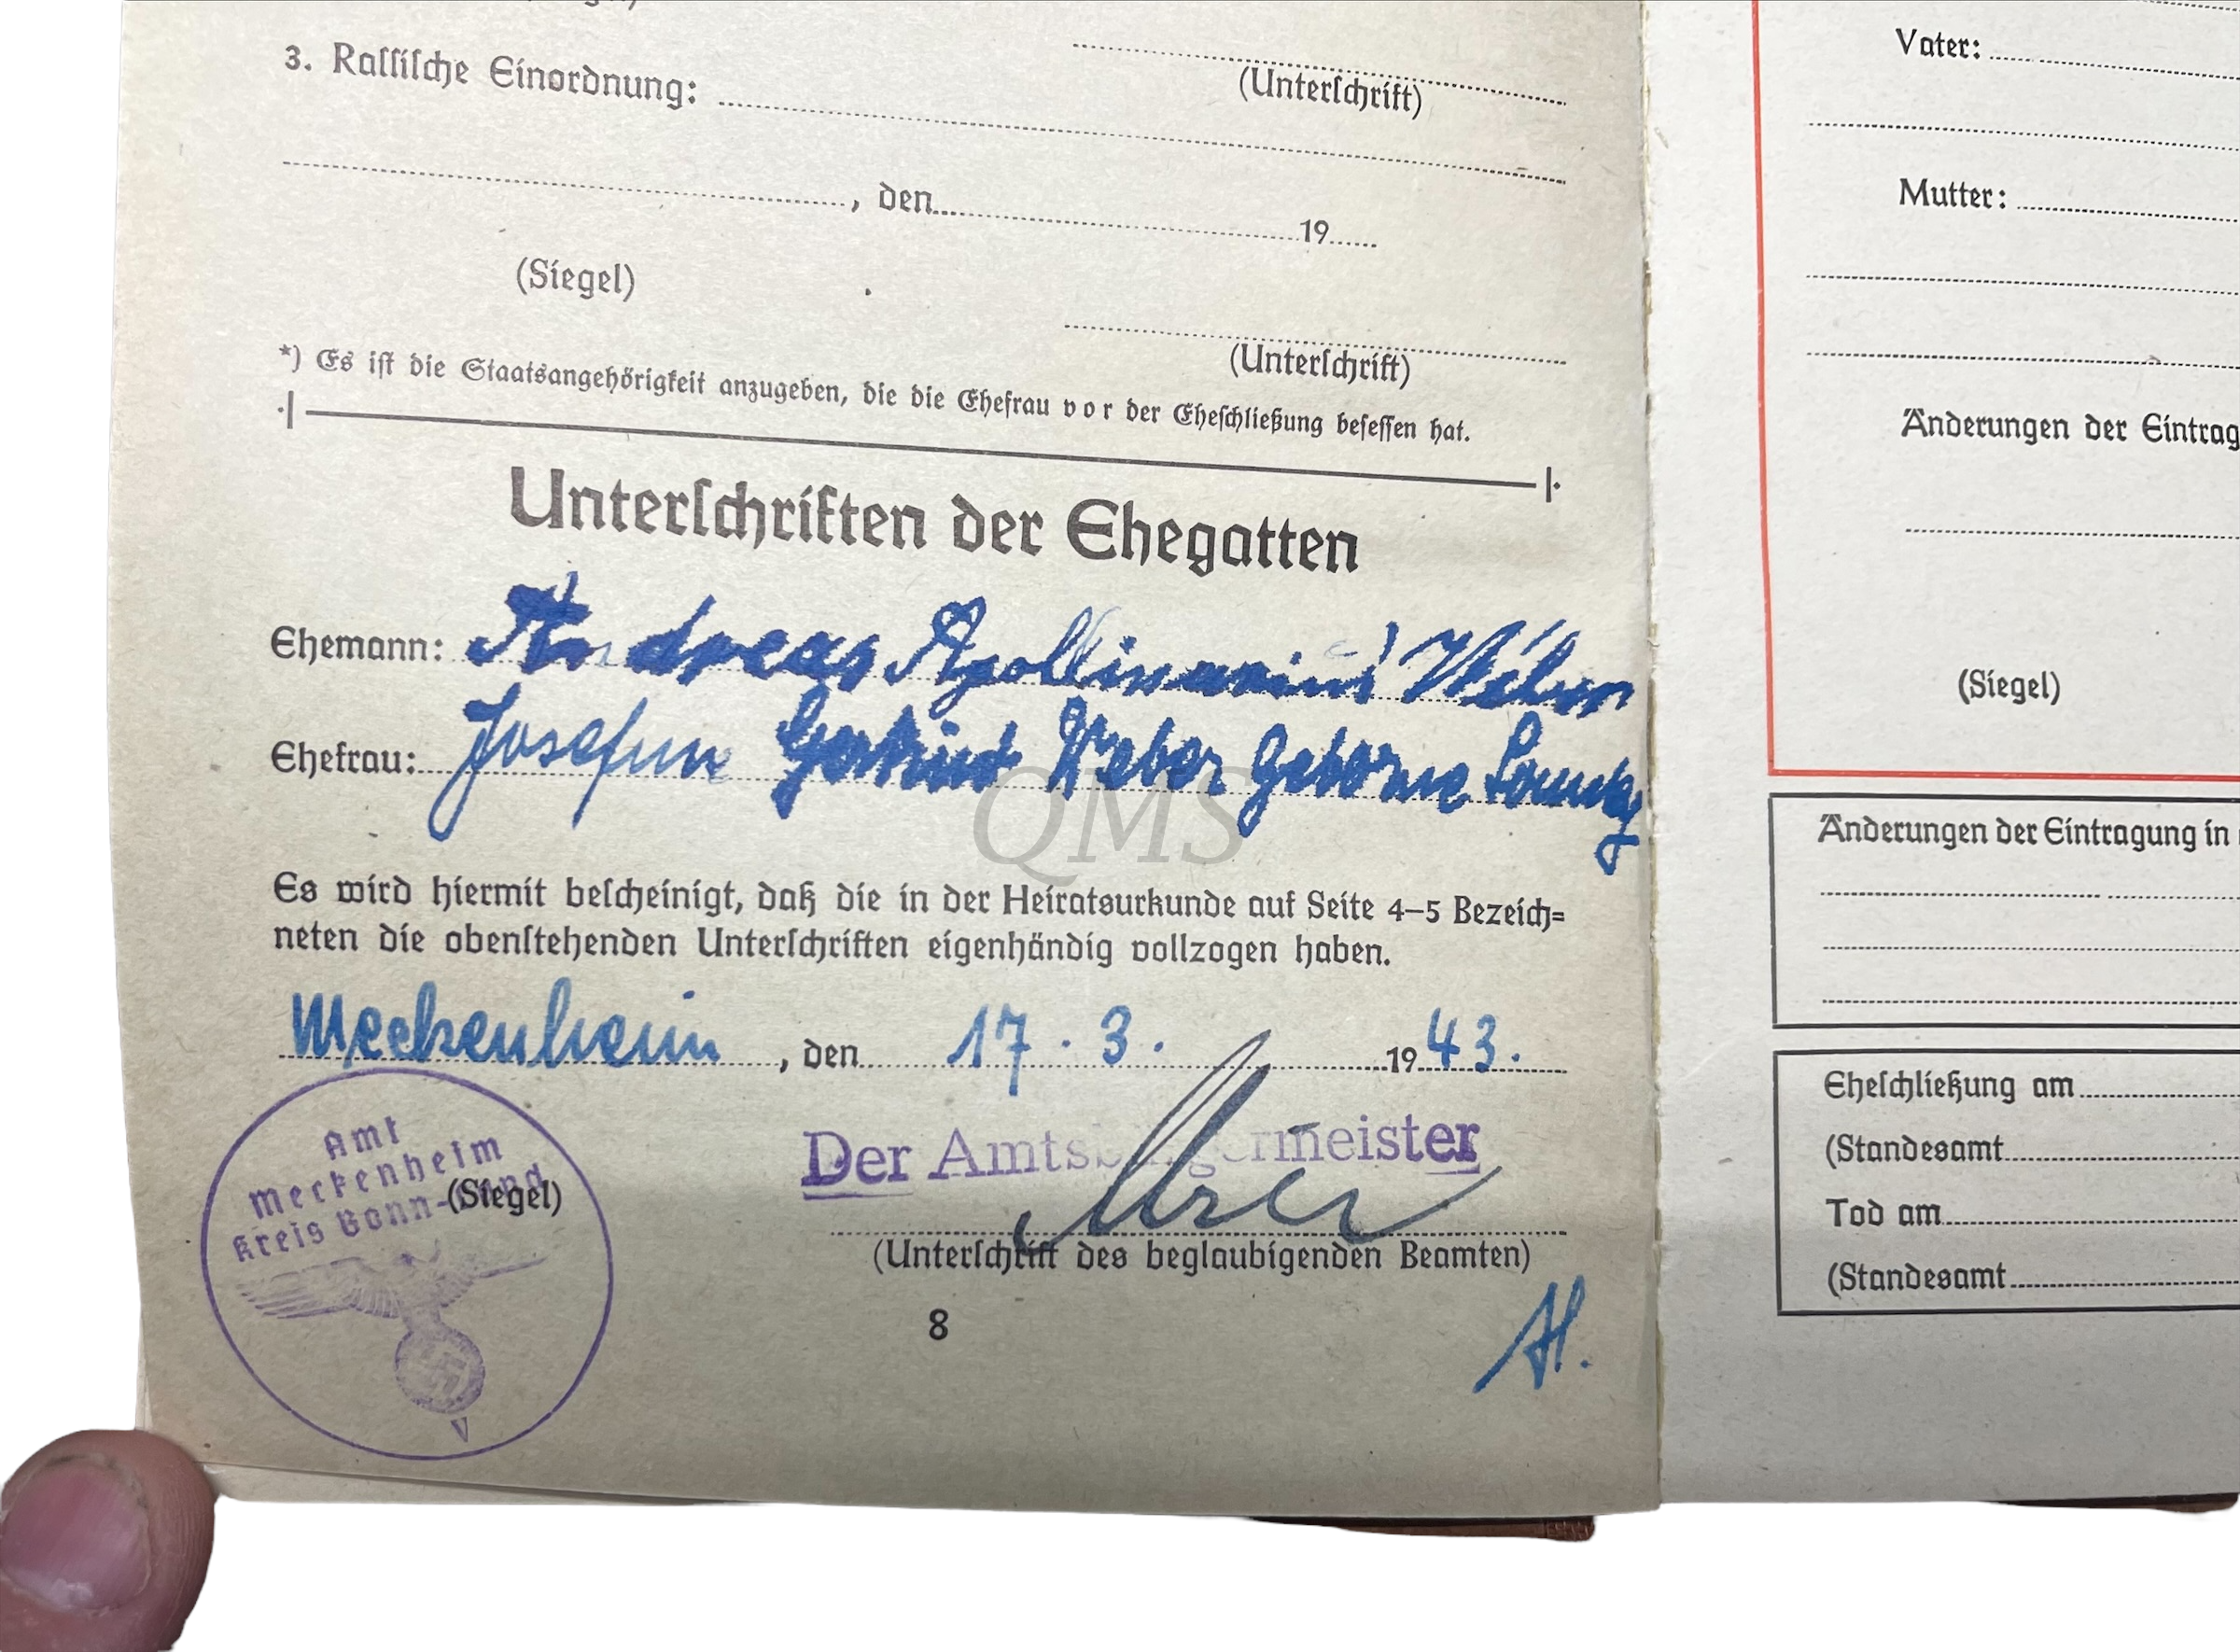 3. Rassische Einordnung:
(Unterschrift)
, den 19
(Siegel)
(Unterschrift)
*) Es ist die Staatsangehörigkeit anzugeben, die die Ehefrau vor der Eheschließung besessen hat.
Unterschriften der Ehegatten
Ehemann: Andreas Apollinarius
Ehefrau: Josefine Gertrud Weber Geborne
QMS
Es wird hiermit bescheinigt, daß die in der Heiratsurkunde auf Seite 4–5 Bezeich=
neten die obenstehenden Unterschriften eigenhändig vollzogen haben.
Meckenheim, den 17. 3. 1943.
Der Amtsbürgermeister
(Unterschrift des beglaubigenden Beamten)
Amt
Meckenheim
Kreis Bonn-Land
(Siegel)
8
Vater:
Mutter:
Änderungen der Eintrag
(Siegel)
Änderungen der Eintragung in
Eheschließung am
(Standesamt
Tod am
(Standesamt